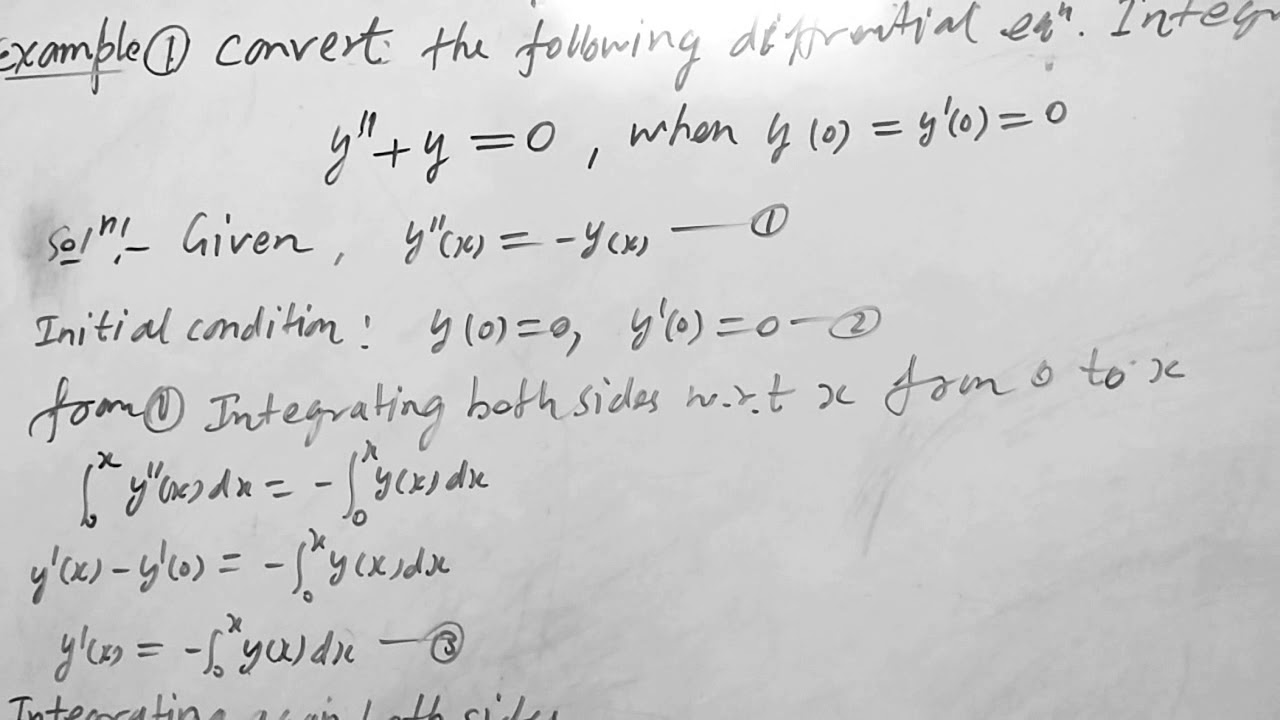 Example ① Convert the following diffrential eqⁿ. Integ
y'' + y = 0 , when y(0) = y'(0) = 0
Solⁿ:- Given, y''(x) = -y(x) — ①
Initial condition: y(0)=0, y'(0) = 0 — ②
from ① Integrating both sides w.r.t x from 0 to x
∫₀ˣ y''(x) dx = - ∫₀ˣ y(x) dx
y'(x) - y'(0) = - ∫₀ˣ y(x) dx
y'(x) = - ∫₀ˣ y(x) dx — ③
Integrating again both sides